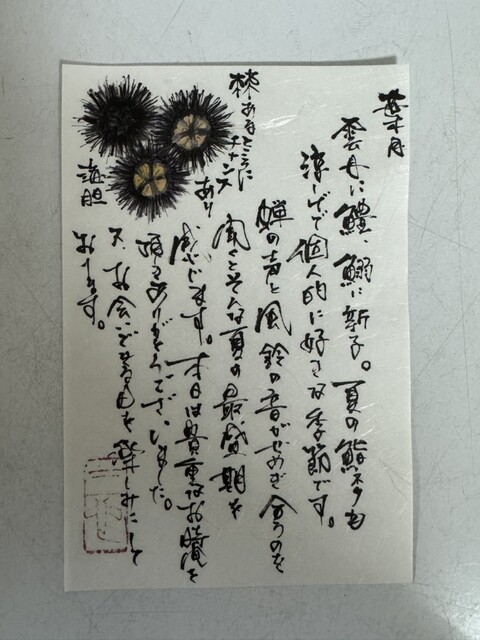 葉月
雲丹に鱧、鰯に新子。夏の鮨ネタも
涼しげで個人的に好きな季節です。
蝉の声と風鈴の音がせめぎ合うのを
聞くとそんな夏の最盛期を
感じます。本日は貴重なお時間を
頂きありがとうございました。
又、お会いできる日を楽しみにして
おります。
棘あるところに
チャンスあり
海胆